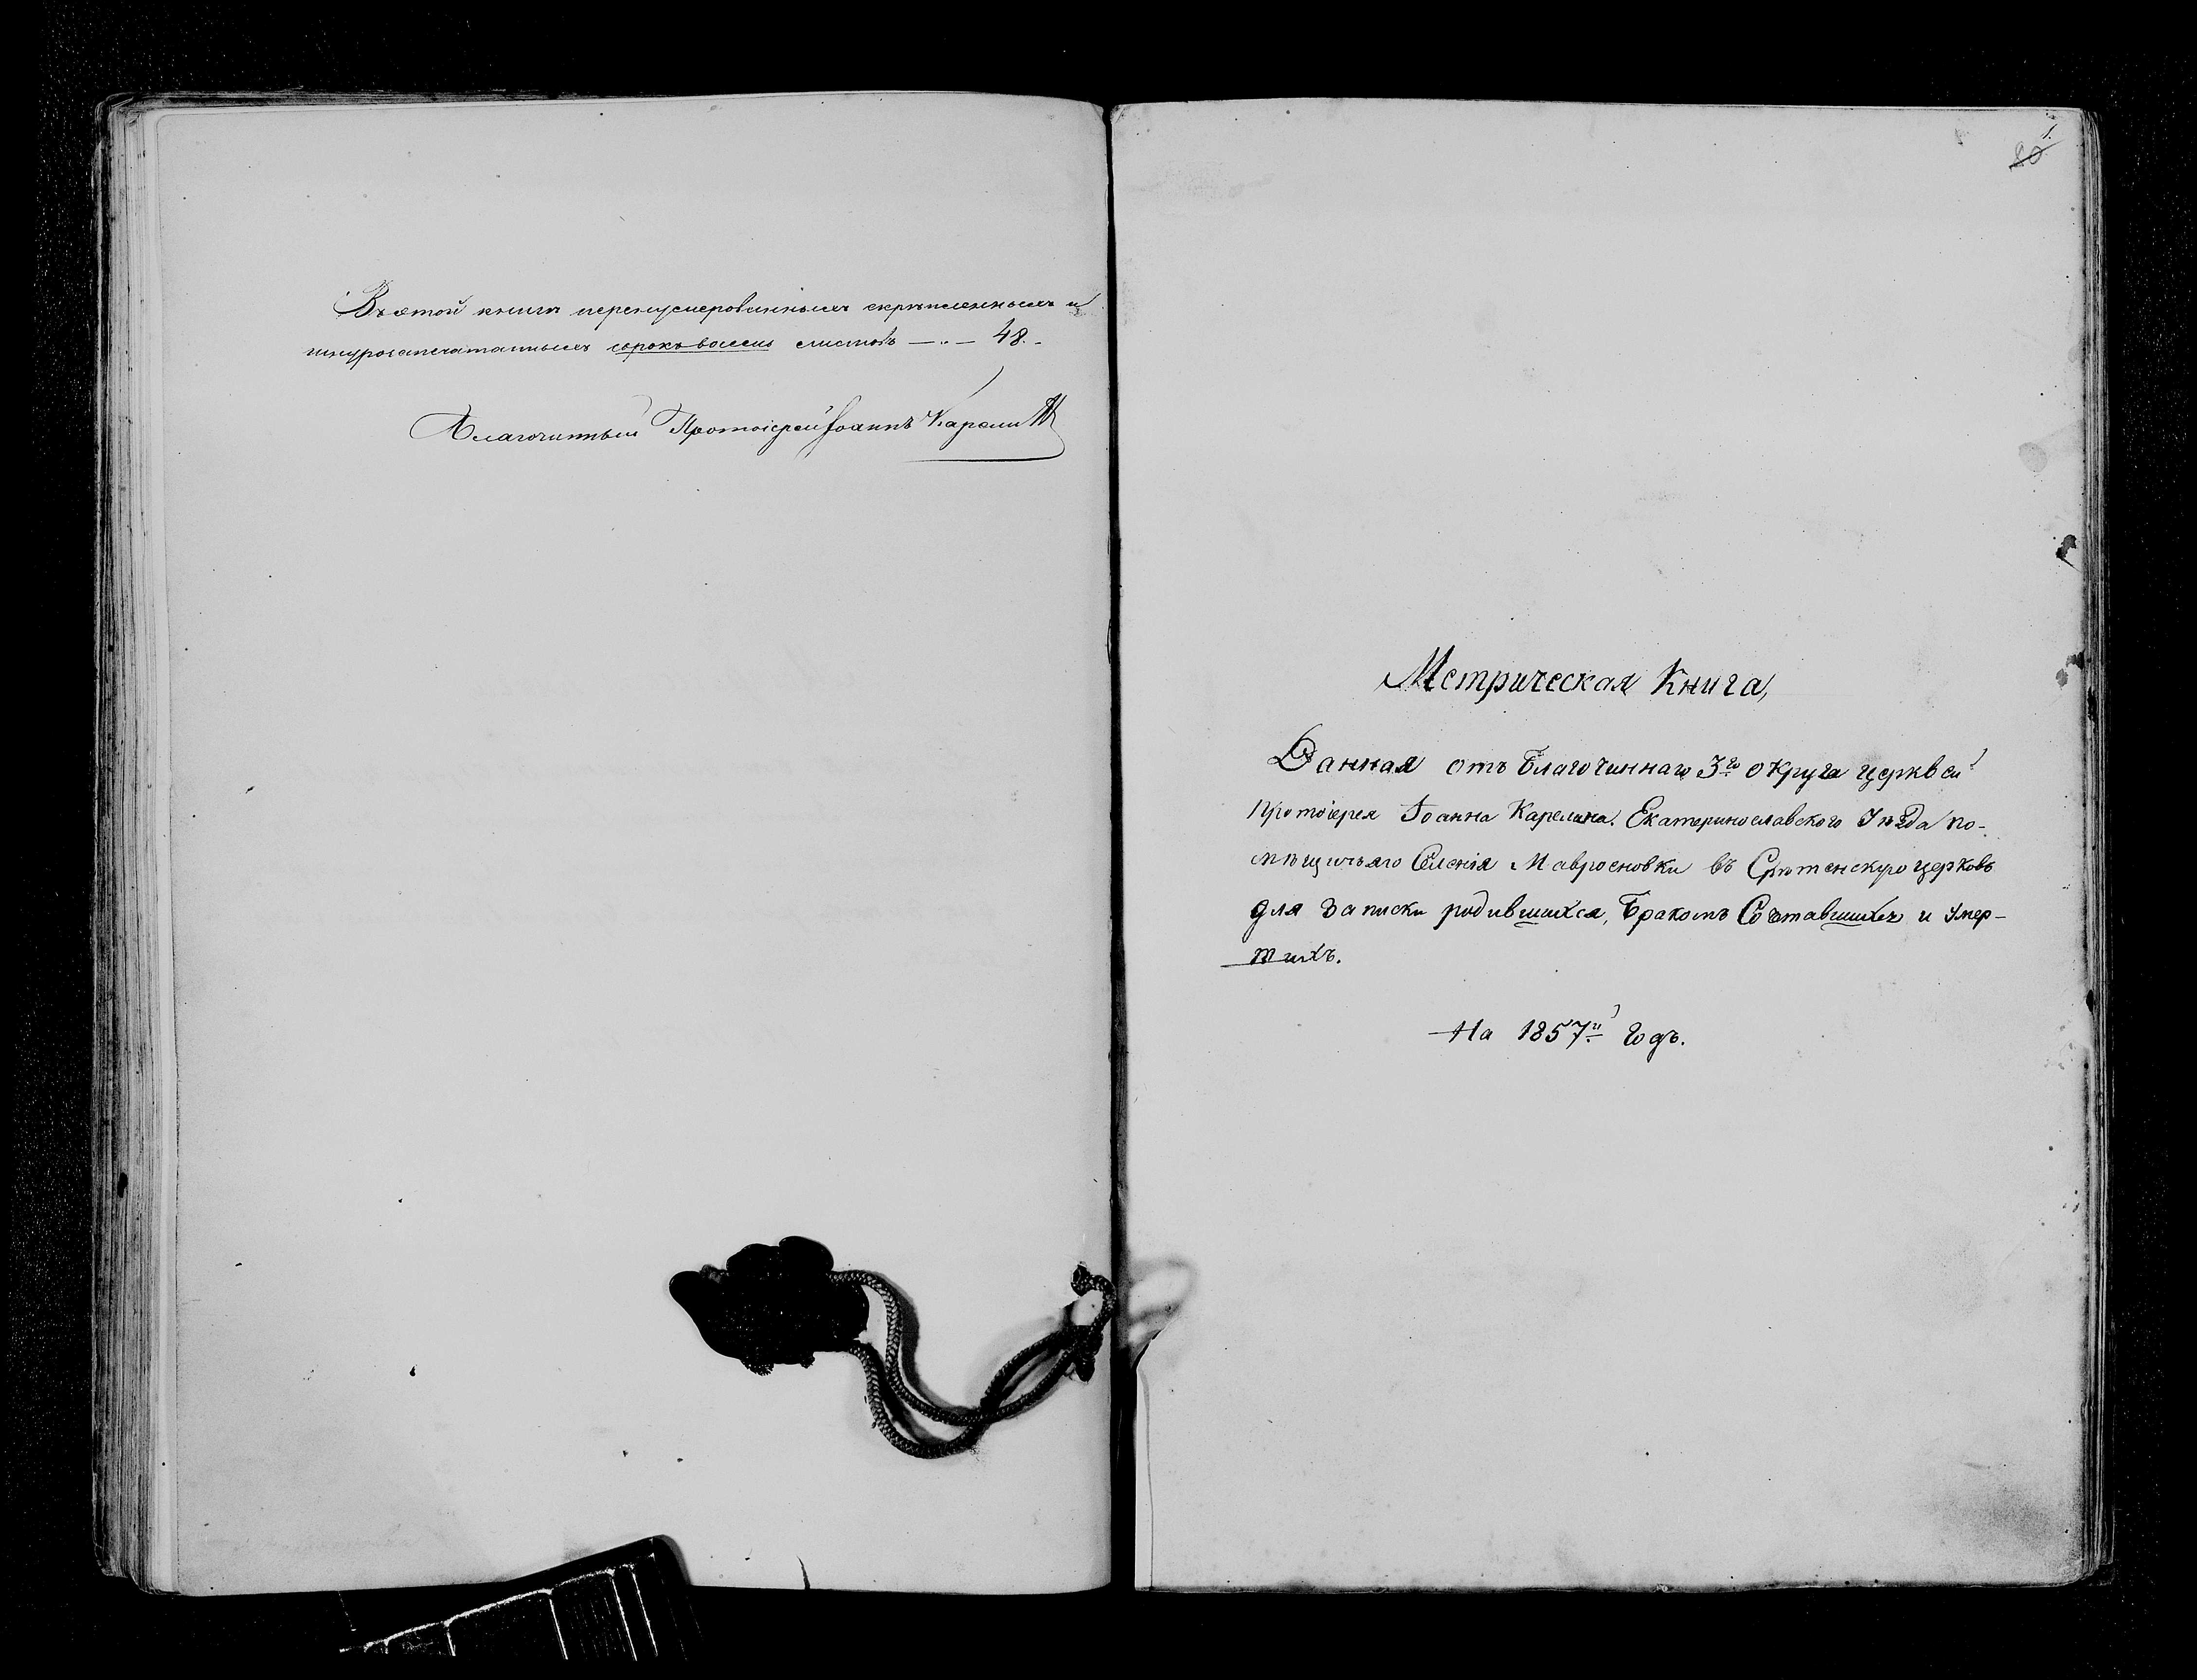 Въ этой книге перенумерованныхъ скрепленныхъ и
шнурозапечатанныхъ сорокъ восемь листовъ — „ — 48. -
Благочинный Протоіерей Іоаннъ Карелин
1.
80
Метрическая Книга,
Данная отъ Благочиннаго 3го округа церквей
Протоіерея Іоанна Карелина. Екатеринославского Уѣзда по-
мѣщичьяго Селенія Мавроеновки въ Срѣтенскую церковь
для записки родившихся, Бракомъ Сочетавшихъ и Умер-
шихъ.
На 1857й Годъ.